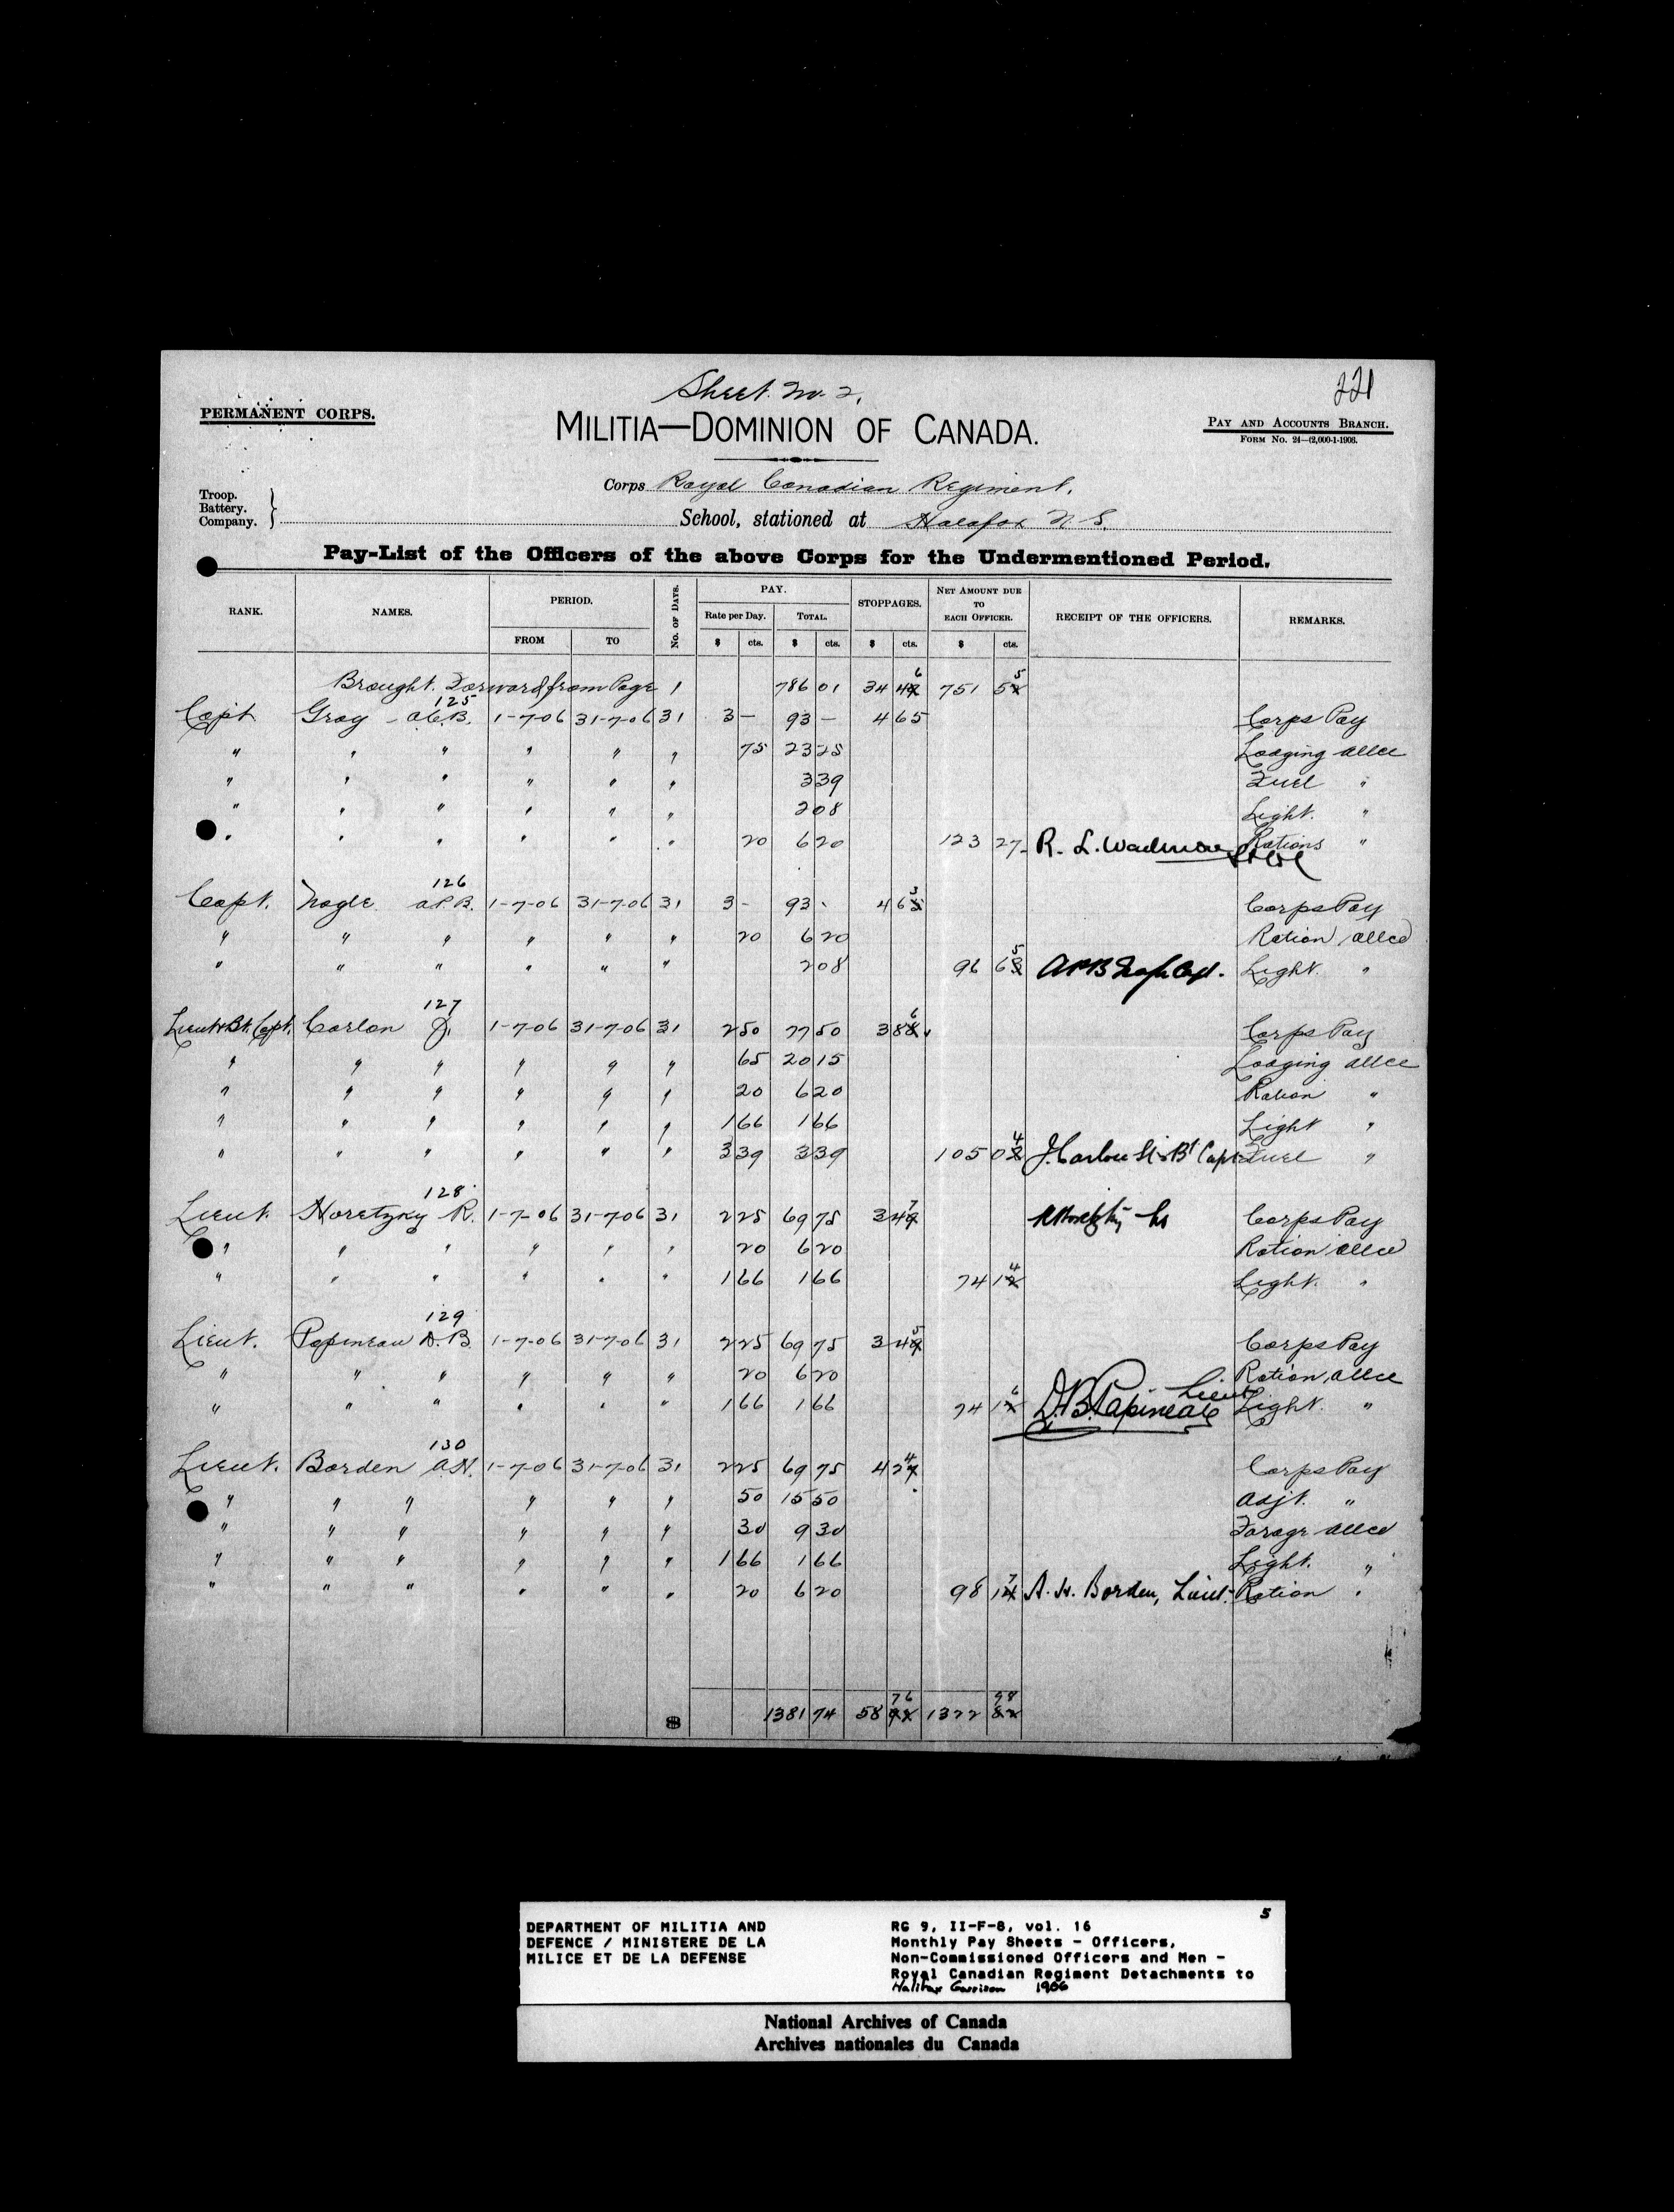 Sheet No. 2.
221
PERMANENT CORPS.
MILITIA—DOMINION OF CANADA.
PAY AND ACCOUNTS BRANCH.
FORM No. 24—(2,000-1-1906.
Corps Royal Canadian Regiment.
Troop.
Battery.
Company. } School, stationed at Halafax N.S.
Pay-List of the Officers of the above Corps for the Undermentioned Period.
RANK. NAMES. PERIOD. FROM TO No. OF DAYS. PAY. Rate per Day. TOTAL. STOPPAGES. NET AMOUNT DUE TO EACH OFFICER. RECEIPT OF THE OFFICERS. REMARKS.
$ cts. $ cts. $ cts. $ cts.
Brought Forward from Page 1 786 01 34 46 751 55
125
Capt Gray A.C.B. 1-7-06 31-7-06 31 3 — 93 — 4 65 Corps Pay
" " " " " " 75 23 25 Lodging allce
" " " " " " 3 39 Fuel "
" " " " " " 2 08 Light. "
" " " " " " 20 6 20 123 27 R. L. Wadmore Rations "
126
Capt. Nagle A.P.B. 1-7-06 31-7-06 31 3 - 93 - 4 63 Corps Pay
" " " " " " 20 6 20 Ration allce
" " " " " " 2 08 96 65 Light. "
127
Lieut & Bt. Capt. Carlon J. 1-7-06 31-7-06 31 2 50 77 50 3 86 Corps Pay
" " " " " " 65 20 15 Lodging allce
" " " " " " 20 6 20 Ration "
" " " " " " 1 66 1 66 Light "
" " " " " " 3 39 3 39 105 04 J. Carlon Lt & Bt Capt Fuel "
128
Lieut. Horetzky R. 1-7-06 31-7-06 31 2 25 69 75 3 47 Corps Pay
" " " " " " 20 6 20 Ration allce
" " " " " " 1 66 1 66 74 14 Light. "
129
Lieut. Papineau D.B. 1-7-06 31-7-06 31 2 25 69 75 3 45 Corps Pay
" " " " " " 20 6 20 Ration allce
" " " " " " 1 66 1 66 74 16 D.B. Papineau Lieut Light. "
130
Lieut. Borden A.H. 1-7-06 31-7-06 31 2 25 69 75 4 24 Corps Pay
" " " " " " 50 15 50 Adjt. "
" " " " " " 30 9 30 Forage allce
" " " " " " 1 66 1 66 Light. "
" " " " " " 20 6 20 98 17 A. H. Borden, Lieut. Ration "
1381 74 58 76 1322 98
5
DEPARTMENT OF MILITIA AND
DEFENCE / MINISTERE DE LA
MILICE ET DE LA DEFENSE
RG 9, II-F-8, vol. 16
Monthly Pay Sheets - Officers,
Non-Commissioned Officers and Men -
Royal Canadian Regiment Detachments to
Halifax Garrison 1906
National Archives of Canada
Archives nationales du Canada